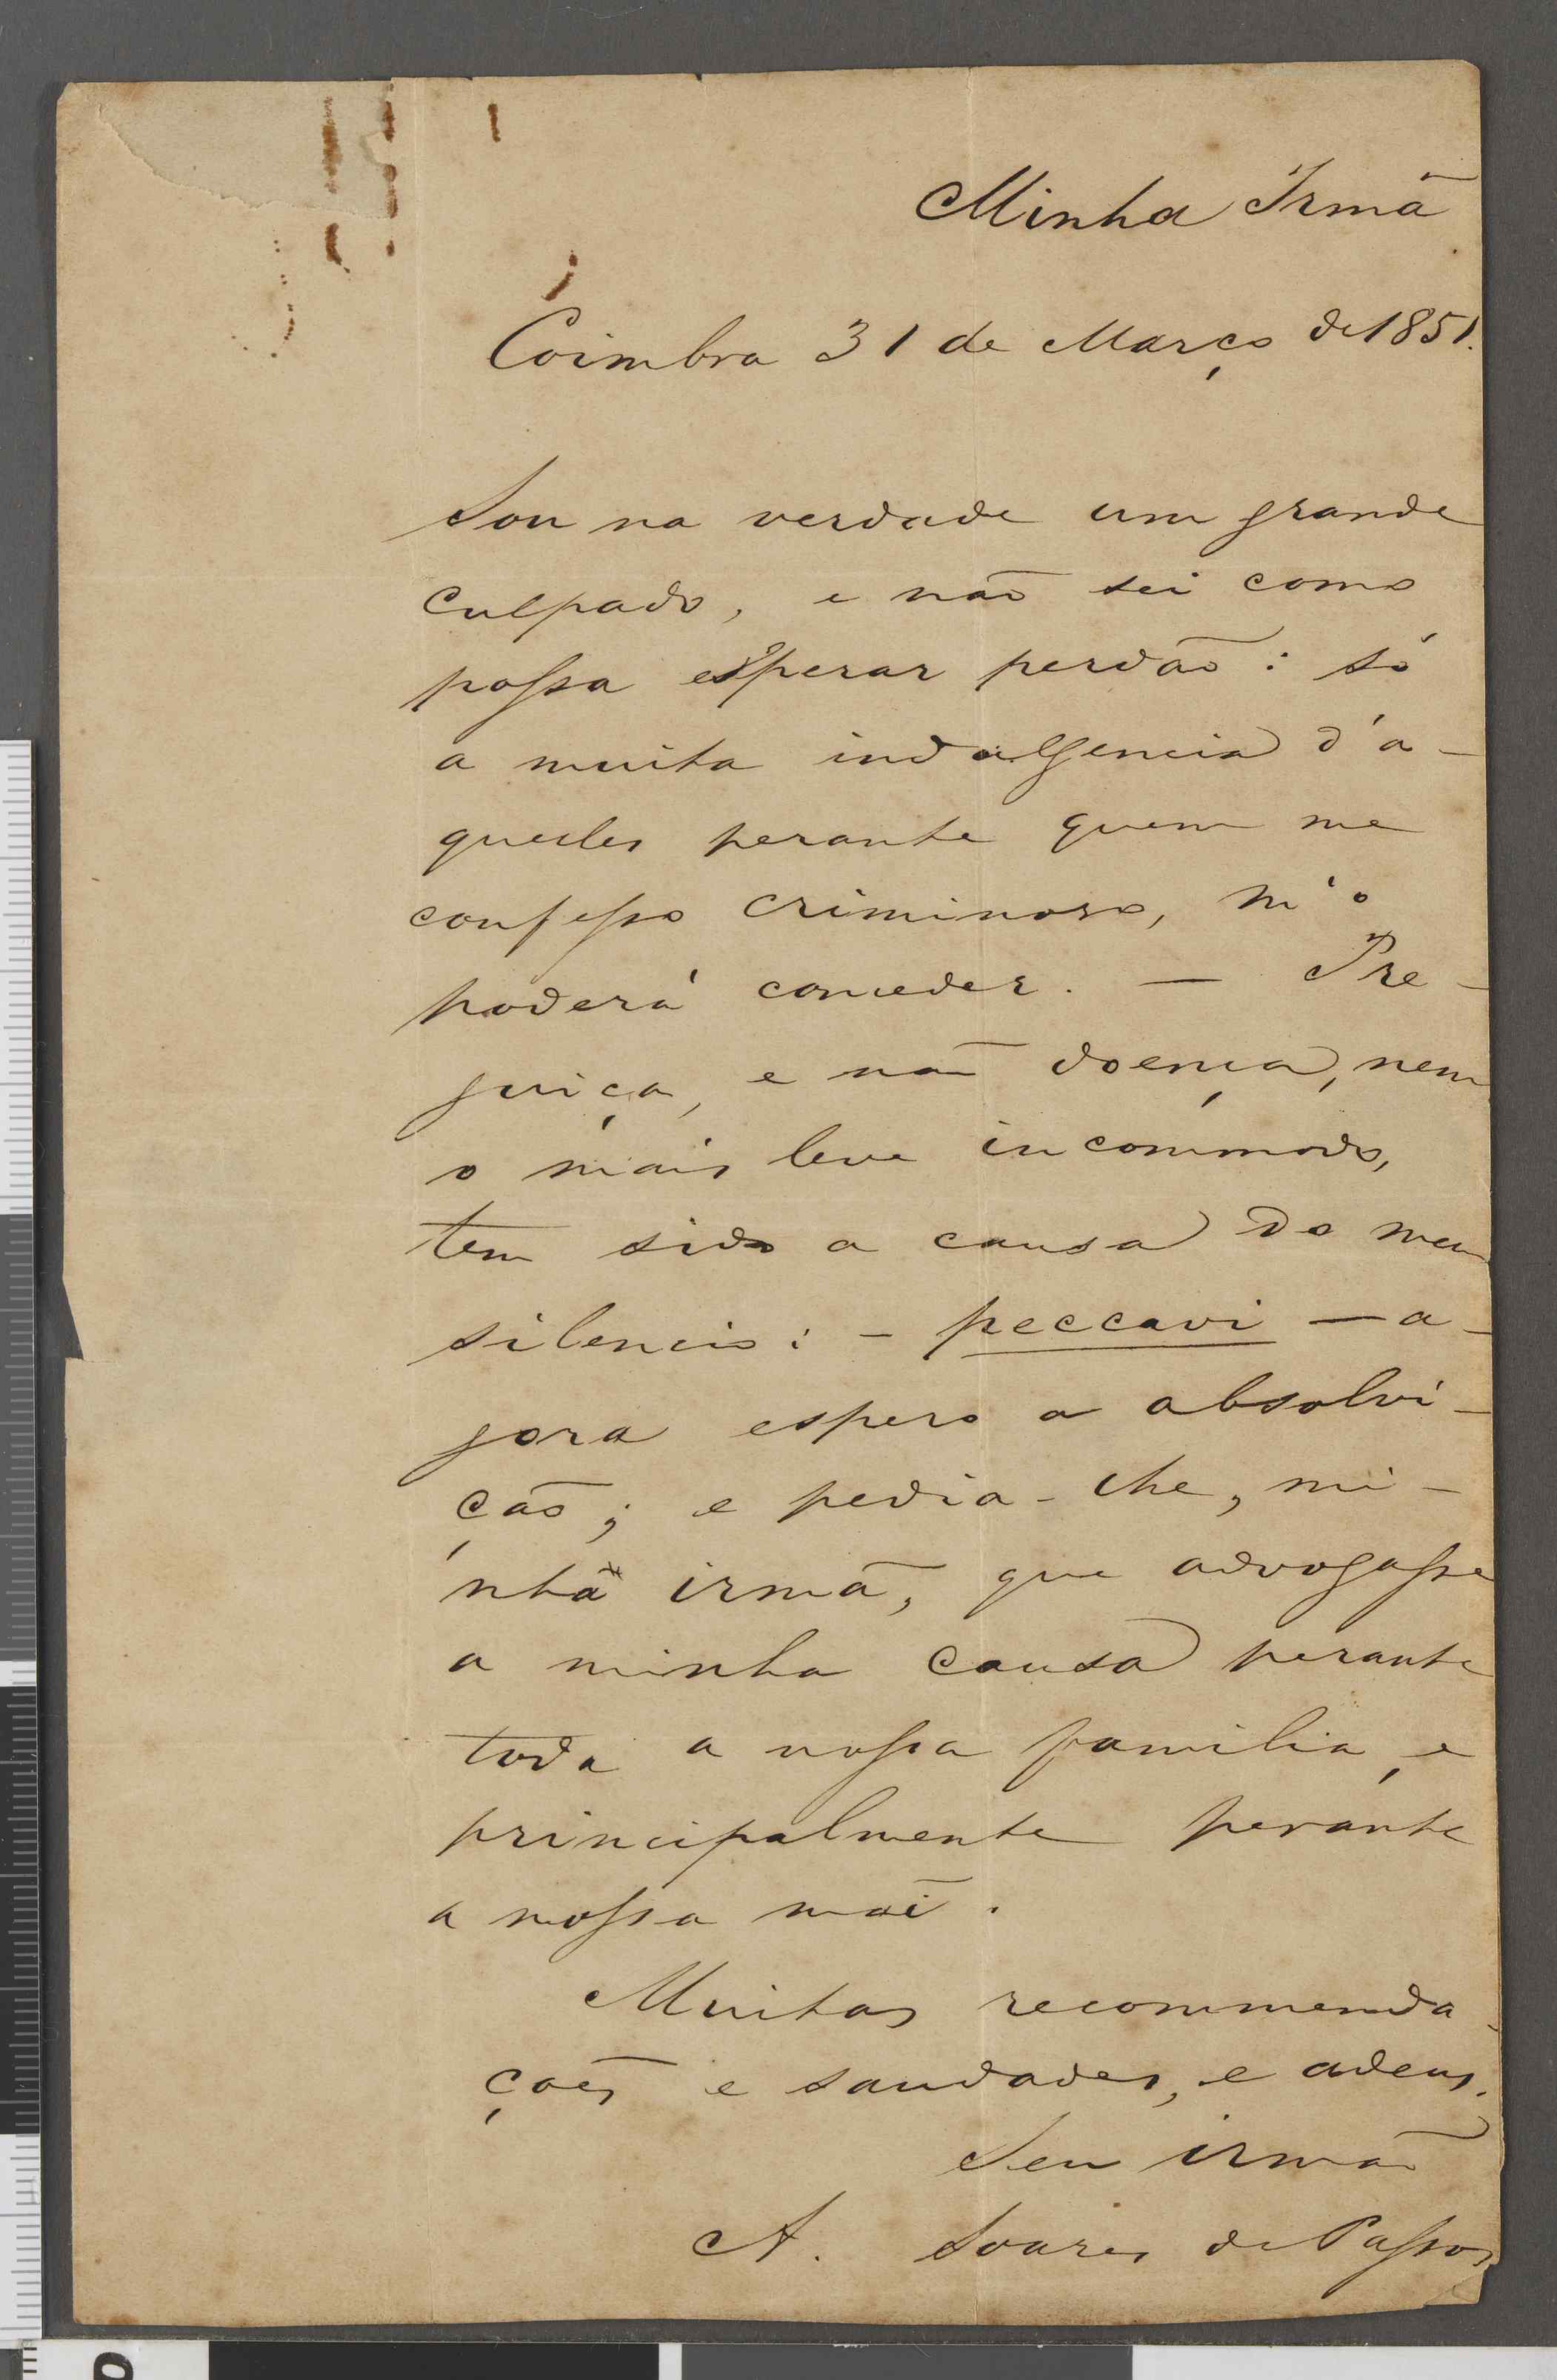 Minha Irmã
Coimbra 31 de Março de 1851.
Sou na verdade um grande
culpado, e não sei como
possa esperar perdão: só
a muita indulgencia d'a-
quelles perante quem me
confesso criminoso, m'o
poderá conceder. — Pre-
guiça, e não doença, nem
o mais leve incommodo,
tem sido a causa do meu
silencio: - peccavi — a-
gora espero a absolvi-
ção; e pedia-lhe, mi-
nha irmã, que advogasse
a minha causa perante
toda a nossa familia, e
principalmente perante
a nossa mãi.
Muitas recommenda-
ções e saudades, e adeus.
Seu irmão
A. Soares de Passos